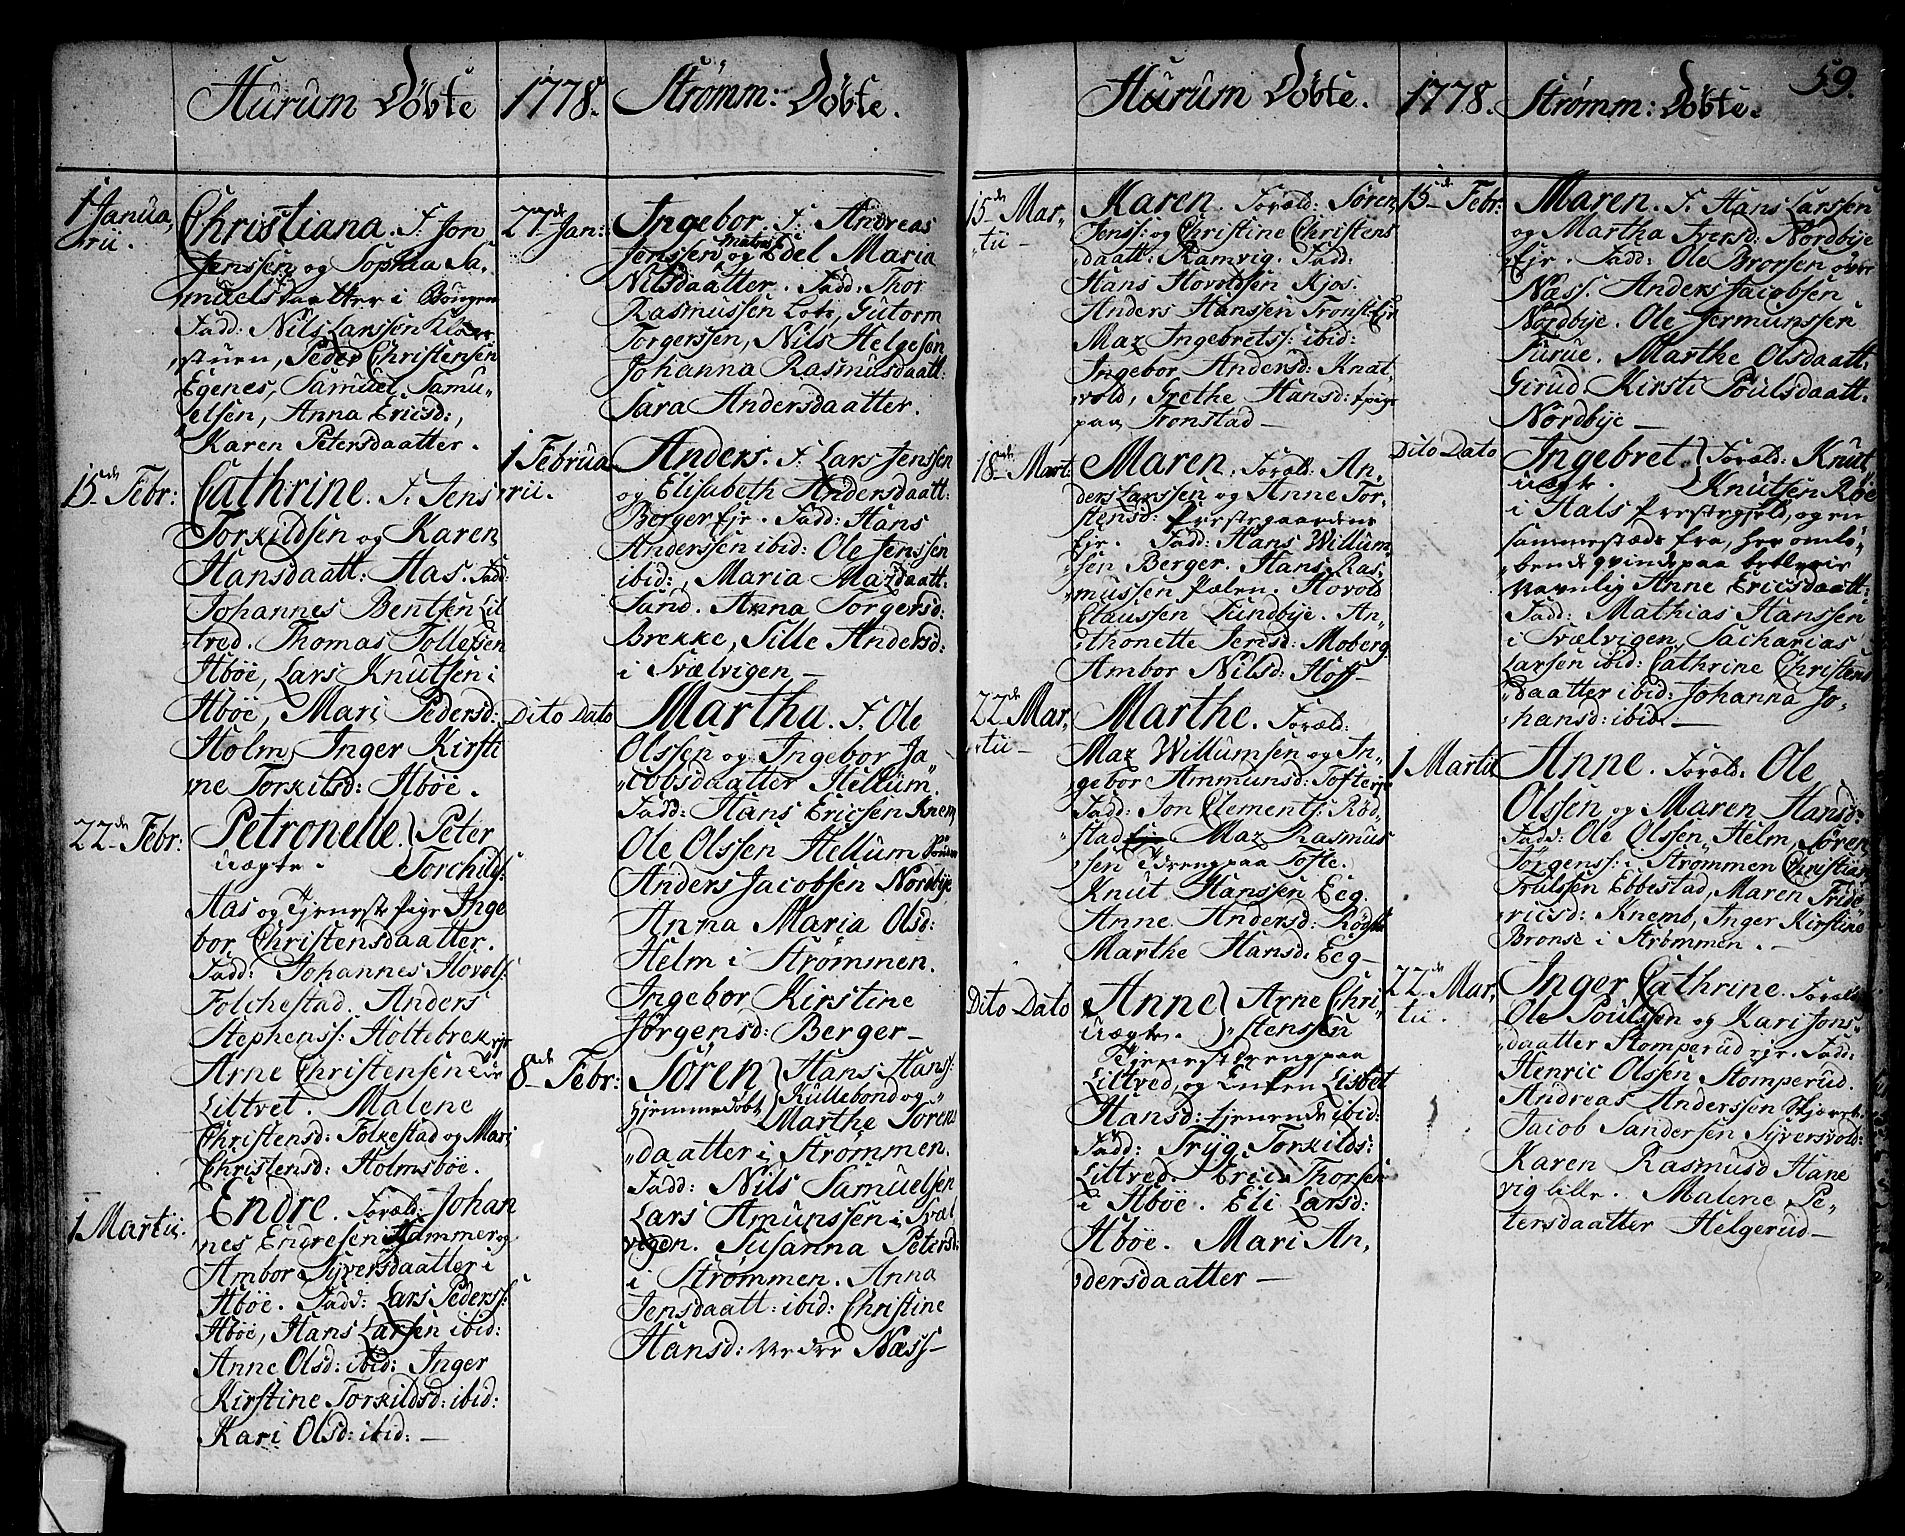 Hurum Døbte
1778.
Strømm: Døbte.
1 Janua,
rii.
Christiana. F. Jon
Jenssen og Sophia Sa,
muelsdaatter i
Fadd: Nils Larssen
stuen, Peder Christensen
Egenes, Samuel Samu,,
elsen, Anna Ericsd:,
Karen Petersdaatter.
15de Febr:
Cathrine. F. Jens
Torkildsen og Karen
Hansdaatt: Aas. Fadd:
Johannes Bentsen Lil
tred. Thomas Tollefsen
Abøe, Lars Knutsen i
Abøe, Mari Pedersd:
Holm, Inger Kirsti
ne Torkilsd: Abøe.
22de Febr:
Petronelle. Peter
uægte. Torchilds:
Aas og Tjeneste Pige Inge
bor Christensdaatter.
Fadd: Johannes Hovols:
Folchestad. Anders
Stephenss: Holtebrek ejr
Arne Christensen
Liltvet. Malene
Christensd: Folkestad og Mari
Christensd: Holmsbøe.
1 Martii.
Endre. Foræld: Johan
nes Endresen Hammer og
Ambor Syversdaatter i
Abøe. Fadd: Lars Pederss:
Abøe, Hans Larsen ibid:
Anne Olsd: ibid: Inger
Kirstine Torkildsd: ibid:
Kari Olsd: ibid: —
27de Jan:
Ingebor. F. Andreas
Jenssen Matros og Edel Maria
Nilsdaatter. Fadd: Thor
Rasmussen Lots, Gutorm
Torgerssen, Nils Helgesen
Johanna Rasmusdaatt:
Sara Andersdaatter.
1 Februa
rii.
Anders. F. Lars Jenssen
og Elisabeth Andersdaatt:
Berger Ejr. Fadd: Hans
Anderssen ibid: Ole Jenssen
ibid:, Maria Mazdaatt:
Sand. Anna Torgersd:
Brekke, Sille Andersd:
i Svælvigen —
Dito Dato
Martha. F. Ole
Olssen og Ingebor Ja,,
cobsdaatter Hellum.
Fadd: Hans Ericsen Knem,
Ole Olssen Hellum
Anders Jacobsen Nordbye
Anna Maria Olsd:
Helm i Strømmen.
Ingebor Kirstine
Jørgensd: Berger —
8de Febr:
Søren Hans Hans:
Hjemmedøbt Kullebond og
Marthe Sørens
daatter i Strømmen.
Fadd: Nils Samuelsen
Lars Amunssen i Svæl
vigen. Susanna Petersd:
i Strømmen. Anna
Jensdaatt: ibid: Christine
Hansd: Nedre Næss —
Hurum Døbte.
1778.
Strømm: Døbte.
59.
15de Mar,
tii —
Karen. Foræld: Søren
Jenss: og Christine Christens
daatt: Ramvig. Fadd:
Hans Hovoldsen Kjos.
Anders Hanssen Tronst: Ejr
Maz Ingebretss: ibid:
Ingebor Andersd: Knat,
vold, Grethe Hansd: pige
paa Tronstad —
18de Mart:
Maren. Foræld: An,
ders Larssen og Anne Tor,
stensd: Prestegaardens
Ejr. Fadd: Hans Willum,
sen Berger. Hans Ras,
mussen Pælen. Hovold
Claussen Sundbye. An,
thonette Jensd: Moberg
Ambor Nilsd: Hoff —
22de Mar,
tii —
Marthe. Foræld:
Maz Willumsen og In,
gebor Ammunsd: Tofte ejr
Fadd: Jon Clementss: Rød,
stad Maz Rasmus
sen Dreng paa Tofte.
Knut Hanssen Ecg.
Anne Andersd:
Marthe Hansd: Ecg —
Dito Dato
Anne Arne Chri,
uægte. stenssen
Tjenestdreng paa
Liltved, og Enken Lisbet
Hansd: tjenende ibid:
Fadd: Tryg Torkilds:
Liltved. Eric Thorsen
i Abøe. Eli Larsd:
Abøe. Mari An,
dersdaatter —
15de Febr:
Maren. F. Hans Larssen
og Martha Iversd: Nordbye
Ejr. Fadd: Ole Brorsen øvre
Næss. Anders Jacobsen
Nordbye. Ole Jermunssen
Furue. Marthe Olsdaatt:
Girud. Kirsti Poulsdaatt:
Nordbye —
Dito Dato
Ingebret. Foræld: Knut
uægte. Knutsen Røe
i Hals Prestegjeld, og en
sammestæds fra, her omlø,
bende qvinde paa betlerie
navnlig Anne Ericsdaatt:
Fadd: Mathias Hanssen
i Svælvigen, Zacharias
Larsen ibid: Cathrine Christens
daatter ibid: Johanna Jo,
hansd: ibid: —
1 Martii
Anne. Foræld: Ole
Olssen og Maren Hansd:
Fadd: Ole Olssen Helm, Søren
Jørgenss: i Strømmen Christian
Trulssen Ebbestad, Maren Fride
ricsd: Knemb, Inger Kirstine
Bronse i Strømmen. —
22de Mar,
tii.
Inger Cathrine. Foræld:
Ole Poulssen og Kari Jons
daatter Stomperud ejr. Fadd:
Henric Olssen Stomperud.
Andreas Anderssen
Jacob Sandersen Syversvold:
Karen Rasmusd Hane
vig lille. Malene Pe,
tersdaatter Helgerud —